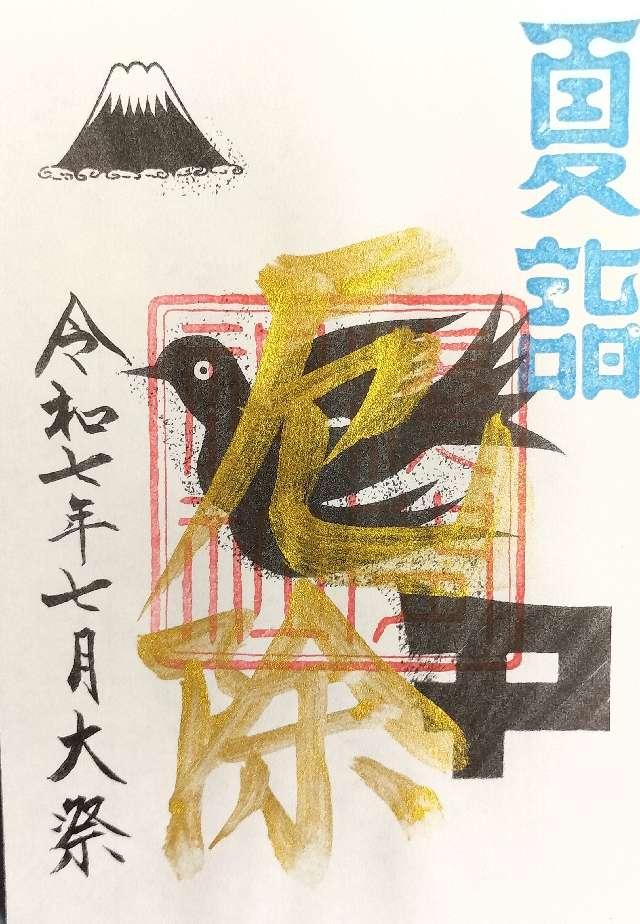 夏詣
厄除
令和七年七月大祭